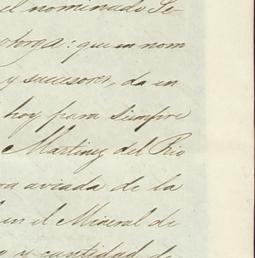 el nominado Se
otorga: que en nom
y sucesores, da en
hoy para siempre
Martinez del Rio
aviada de la
en el Mineral de
y cantidad de